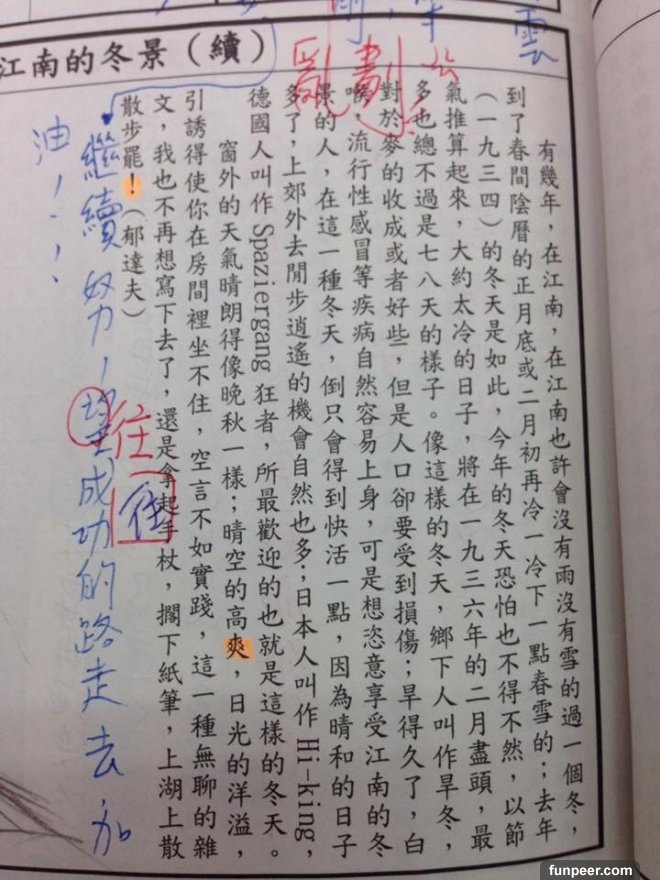 雲
江南的冬景（續）
亂劃
有幾年，在江南，在江南也許會沒有雨沒有雪的過一個冬，
到了春間陰曆的正月底或二月初再冷一冷下一點春雪的；去年
（一九三四）的冬天是如此，今年的冬天恐怕也不得不然，以節
氣推算起來，大約太冷的日子，將在一九三六年的二月盡頭，最
多也總不過是七八天的樣子。像這樣的冬天，鄉下人叫作旱冬，
對於麥的收成或者好些，但是人口卻要受到損傷；旱得久了，白
喉，流行性感冒等疾病自然容易上身，可是想恣意享受江南的冬
景的人，在這一種冬天，倒只會得到快活一點，因為晴和的日子
多了，上郊外去閒步逍遙的機會自然也多；日本人叫作 Hi-king，
德國人叫作 Spaziergang 狂者，所最歡迎的也就是這樣的冬天。
窗外的天氣晴朗得像晚秋一樣；晴空的高爽，日光的洋溢，
引誘得使你在房間裡坐不住，空言不如實踐，這一種無聊的雜
文，我也不再想寫下去了，還是拿起手杖，擱下紙筆，上湖上散
散步罷！（郁達夫）
往
往
繼續努力，成功的路走去，加
油！！！
funpeer.com